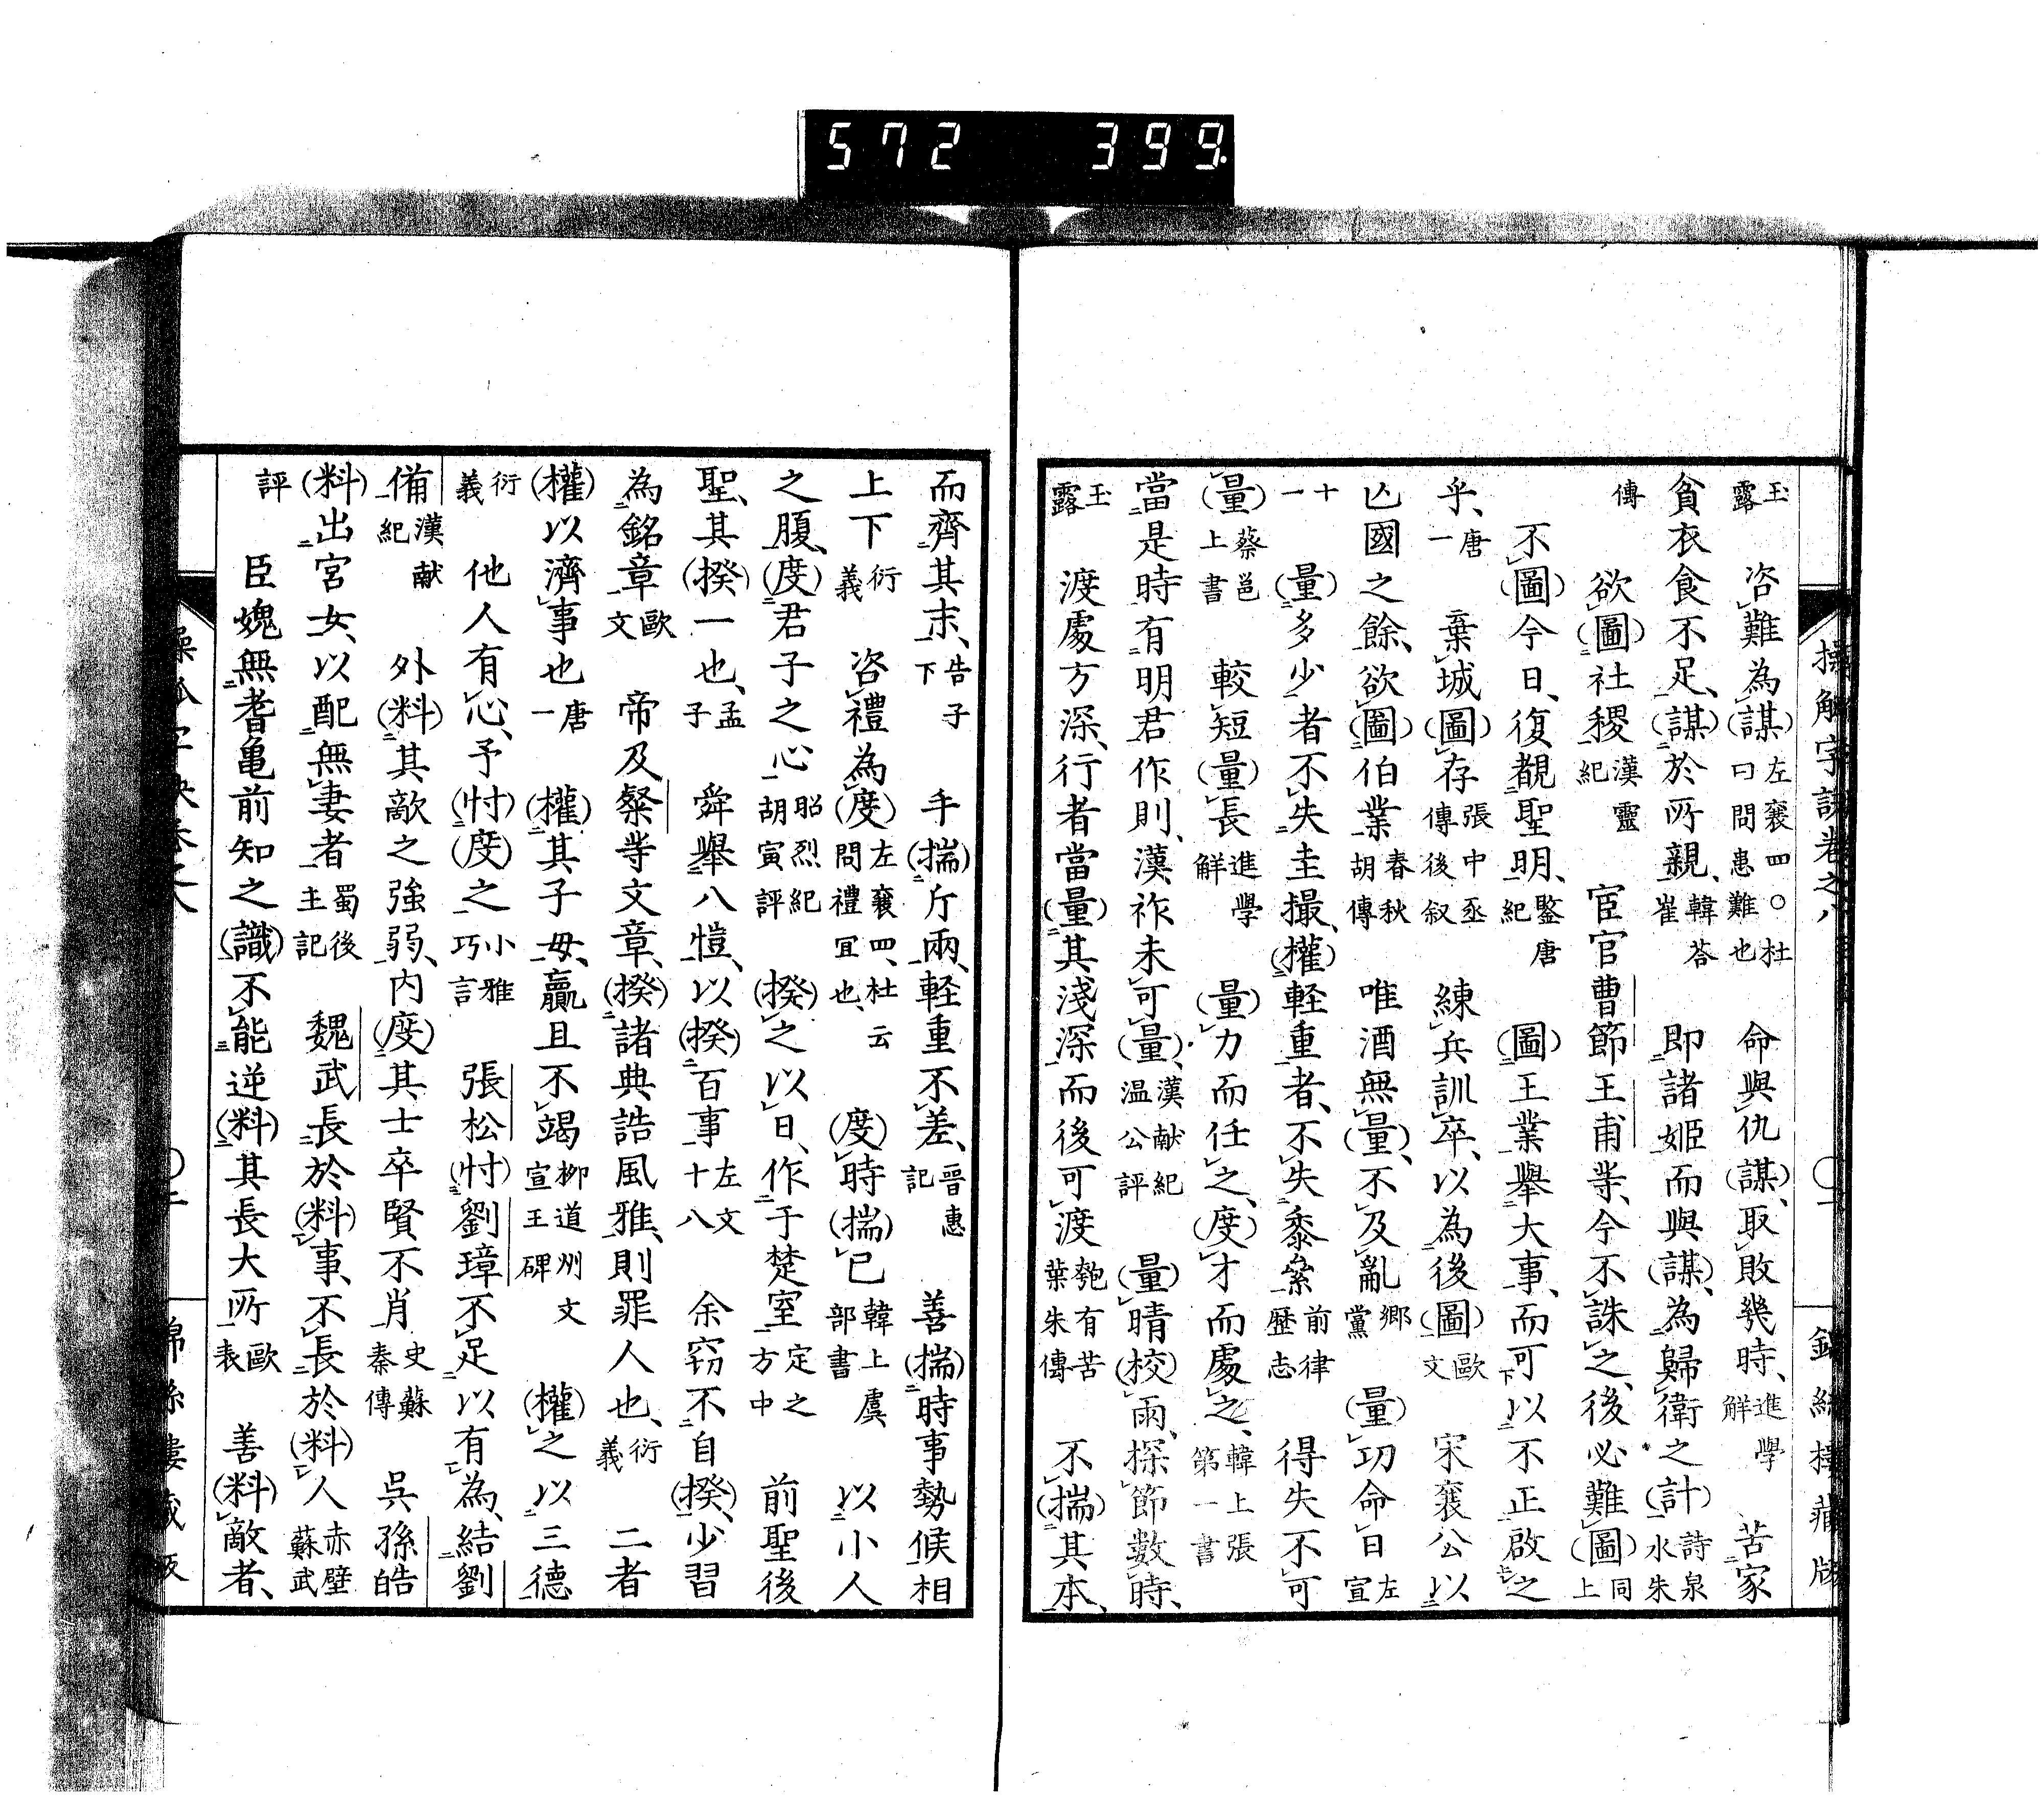 572 399.
玉露 咨難為(謀)左襄四○杜曰問患難也 命與仇(謀)、取敗幾時、進學解 苦家
貧衣食不足、(謀)於所親、韓荅崔 即諸姬而與(謀)、為歸衛之(計)詩泉水朱
傳 欲(圖)社稷漢靈紀 宦官曹節王甫等、今不誅之、後必難(圖)同上
不(圖)今日、復覩聖明、鑒唐紀 (圖)王業舉大事、而可以不正啟之
乎、唐一 棄城(圖)存張中丞傳後叙 練兵訓卒、以為後(圖)歐文 宋襄公以
亾國之餘、欲(圖)伯業春秋胡傳 唯酒無(量)、不及亂鄉黨 (量)功命日左宣
十一 (量)多少者不失圭撮、(權)軽重者、不失黍絫前律歴志 得失不可
(量)蔡邕上書 較短(量)長進學解 (量)力而任之、(度)才而處之、韓上張第一書
當是時有明君作則、漢祚未可(量)、漢献紀温公評 (量)晴(校)雨、探節數時、
玉露 渡處方深、行者當(量)其淺深而後可渡匏有苦葉朱傳 不(揣)其本、
而齊其末、告子下 手(揣)斤兩、軽重不差、晋惠記 善(揣)時事勢候相
上下衍義 咨禮為(度)左襄四、杜云問禮宜也、 (度)時(揣)己韓上虞部書 以小人
之腹、(度)君子之心昭烈紀胡寅評 (揆)之以日、作于楚室定之方中 前聖後
聖、其(揆)一也、孟子 舜舉八愷、以(揆)百事左文十八 余窃不自(揆)、少習
為銘章歐文 帝及粲等文章、(揆)諸典誥風雅、則罪人也、衍義 二者
(權)以濟事也唐一 (權)其子母、贏且不竭柳道州文宣王碑 (權)之以三德
衍義 他人有心、予(忖)(度)之小雅巧言 張松(忖)劉璋不足以有為、結劉
備漢献紀 外(料)其敵之強弱、内(度)其士卒賢不肖史蘇秦傳 呉孫皓
(料)出宮女、以配無妻者蜀後主記 魏武長於(料)事、不長於(料)人赤壁蘇武
評 臣媿無耆亀前知之(識)不能逆(料)其長大所歐表 善(料)敵者、